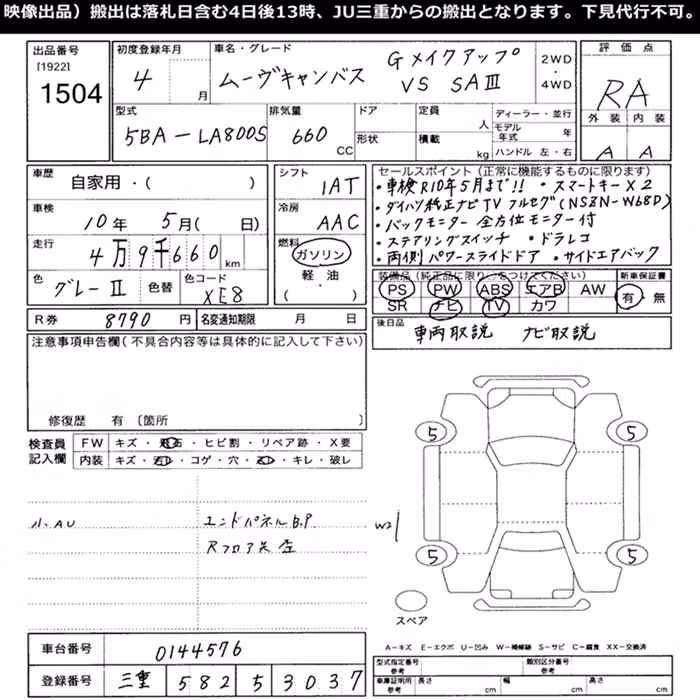 映像出品）搬出は落札日含む4日後13時、JU三重からの搬出となります。下見代行不可。
出品番号
[1922]
1504
初度登録年月
4 月
車名・グレード
ムーヴキャンバス
G メイクアップ
VS SAⅢ
2WD
・
4WD
評価点
RA
外装 内装
A A
型式
5BA-LA800S
排気量
660 CC
ドア
形状
定員 人
積載 kg
ディーラー・並行
モデル年式 年
ハンドル 左・右
車歴
自家用・( )
車検
10年 5月( 日)
走行
4万9千660km
色
グレーⅡ
色替
色コード
XE8
シフト
IAT
冷房
AAC
燃料
ガソリン
軽・油
( )
セールスポイント(正常に機能するものに限ります)
・車検R10年5月まで!! ・スマートキーX2
・ダイハツ純正ナビTVフルセグ(NSZN-W68D)
・バックモニター 全方位モニター付
・ステアリングスイッチ ・ドラレコ
・両側パワースライドドア ・サイドエアバック
装備品(純正品に限り○をつけてください)
PS PW ABS エアB AW
SR ナビ TV カワ
新車保証書
有・無
R券 8790円
名変通知期限 月 日
後日品
車両取説 ナビ取説
注意事項申告欄(不具合内容等は具体的に記入して下さい)
修復歴 有 〔箇所
検査員
記入欄
FW キズ・飛石・ヒビ割・リペア跡・X要
内装 キズ・・コゲ・穴・・キレ・破レ
小、AU
エンドパネルB.P
Rフロア
W2
5
5
5
5
スペア
車台番号 0144576
登録番号 三重 582 53037
A-キズ E-エクボ U-凹み W-補修跡 S-サビ C-腐食 XX-交換済
型式指定番号 参考
類別区分番号 参考
車庫証明用 参考 長さ cm 幅 cm 高さ cm